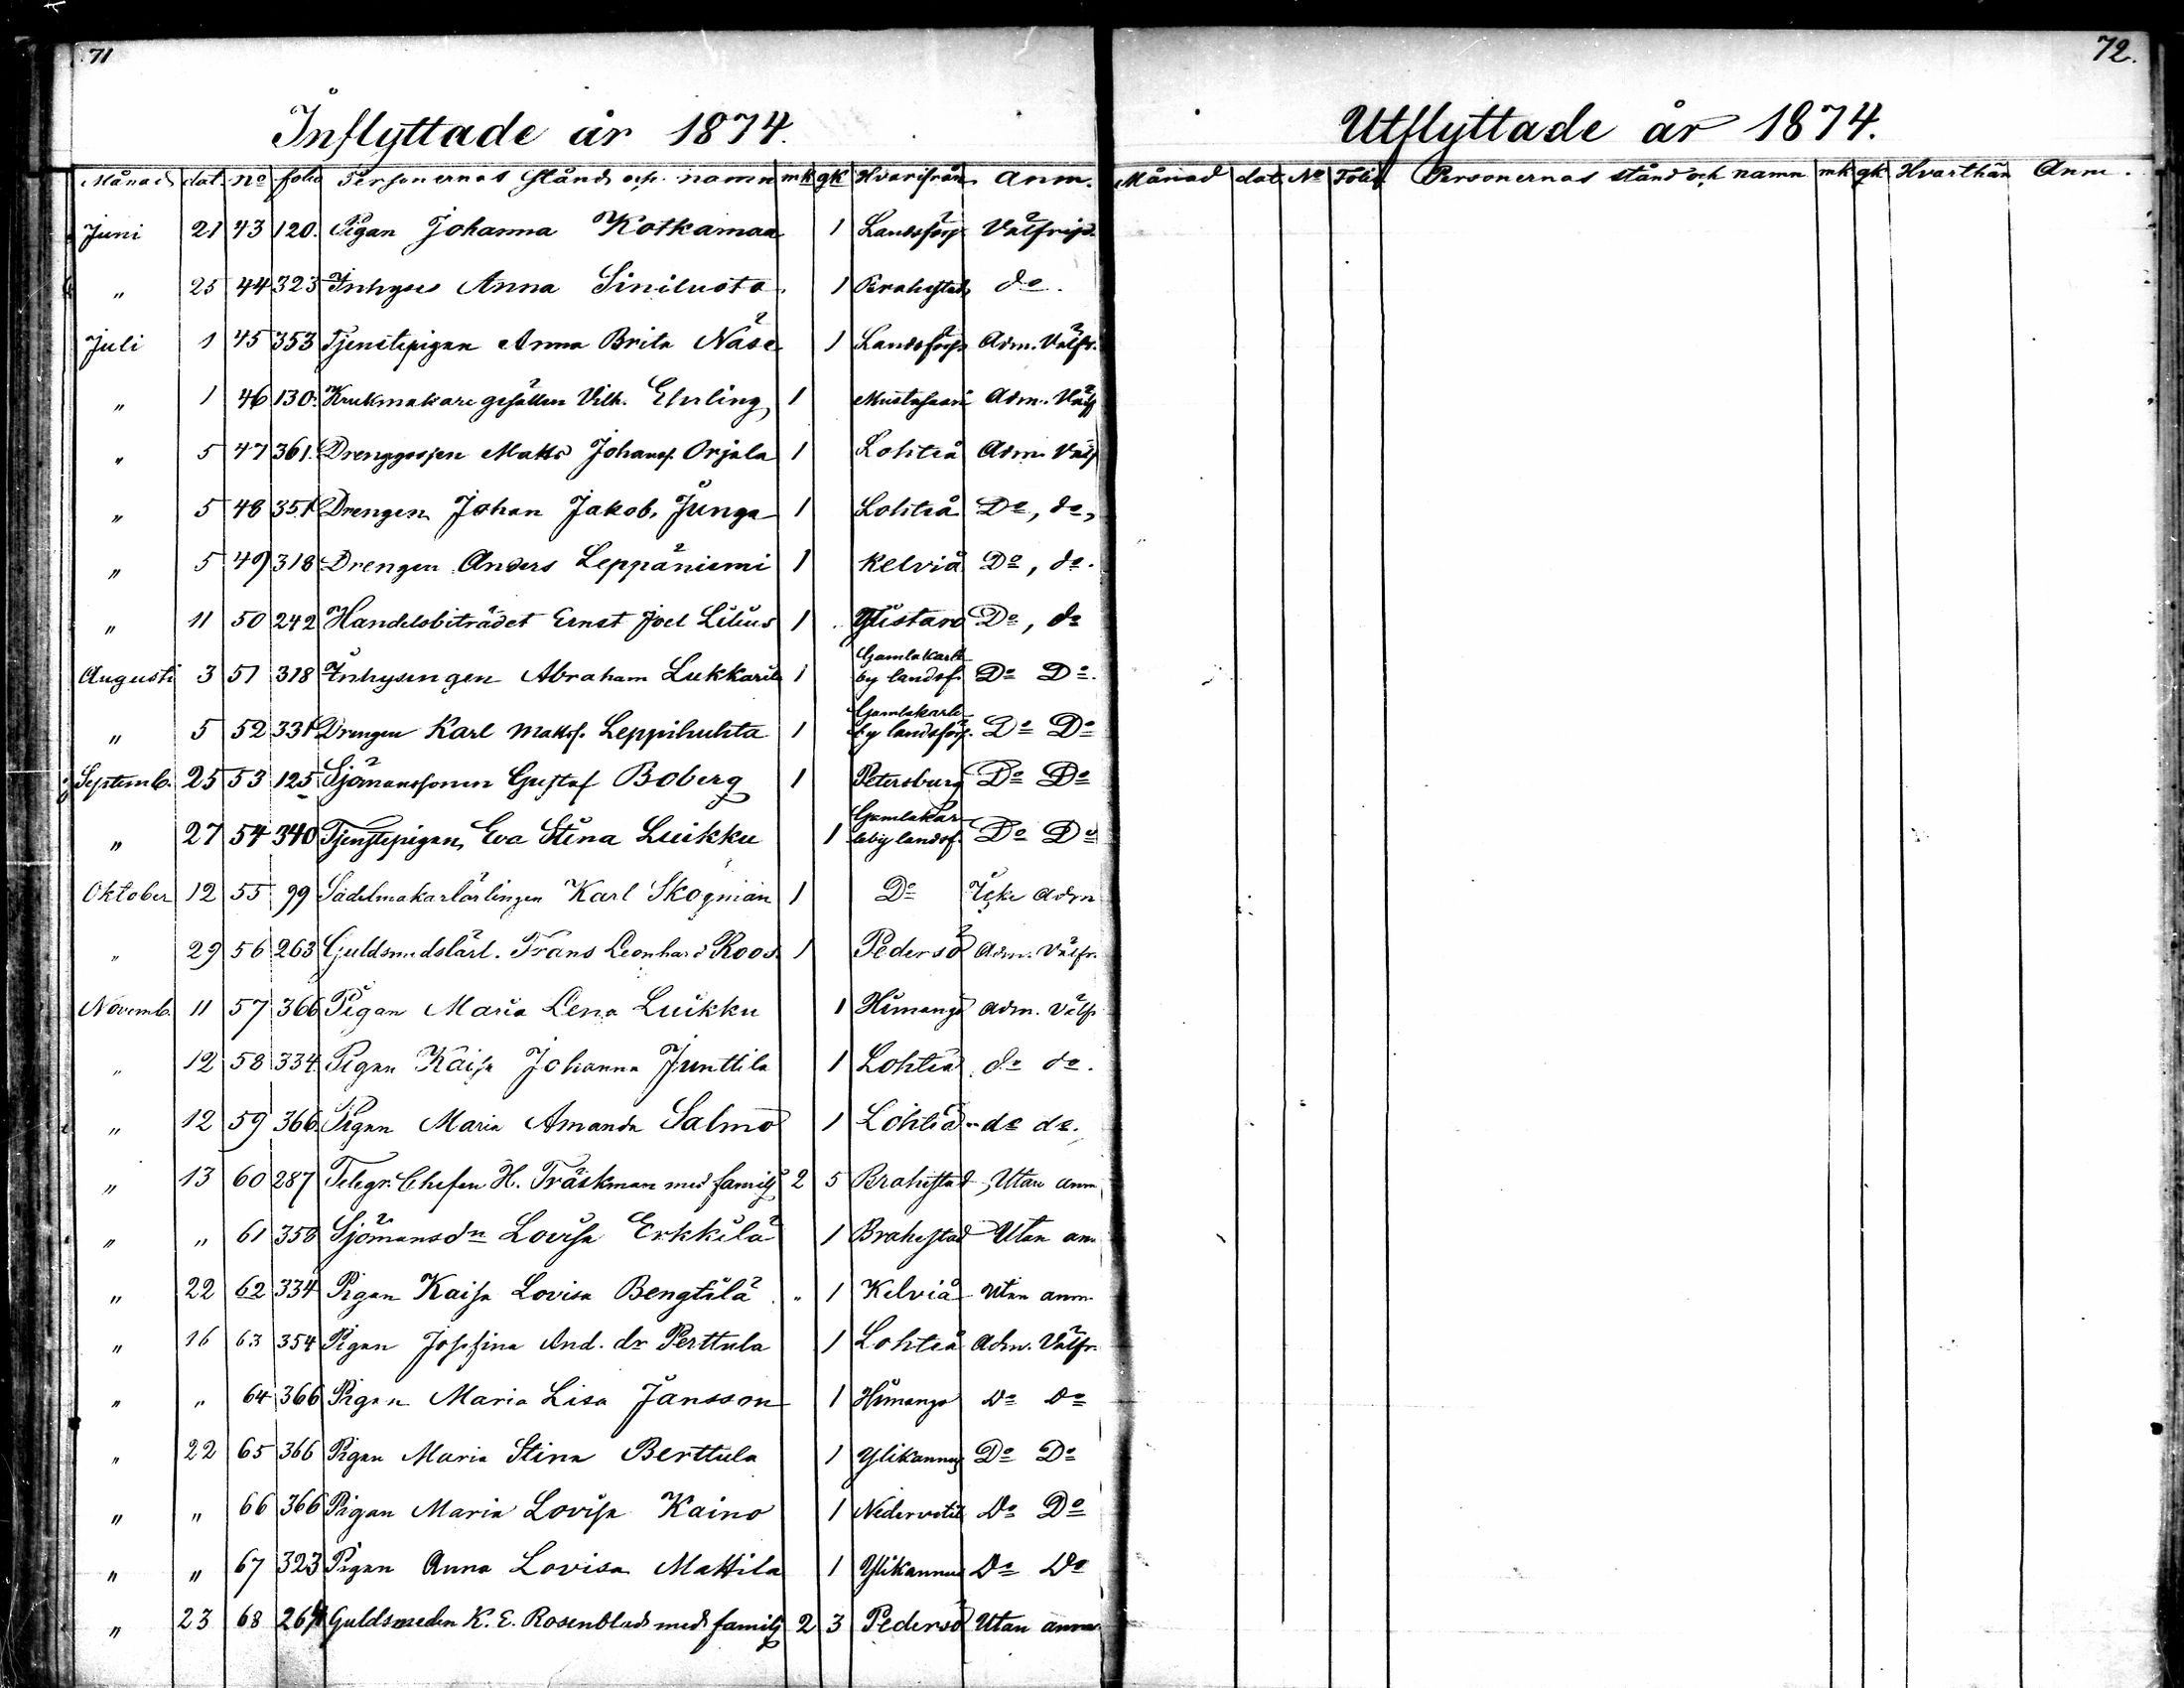 71
Inflyttade år 1874.
Månad dat. No folio Personernas stånd och namn mk qk Hvarifrån Anm.
Juni 21 43 120. Pigan Johanna Kotkamaa 1 Landsförs. Välfrejd.
" 25 44 323 Inhyses Anna Siniluoto. 1 Brahestad do.
Juli 1 45 353 Tjenstepigan Anna Brita Näse 1 Landsförs. Adm. Välfr.
" 1 46 130. Krukmakare gesällen Vilh. Ehrling 1 Mustasaari Adm. Välf
" 5 47 361. Drenggossen Matts Johans. Orjala 1 Lohteå Adm. Välf
" 5 48 351 Drengen Johan Jakob Junga 1 Lohteå Do, do,
" 5 49 318 Drengen Anders Leppäniemi 1 Kelviå Do, do.
" 11 50 242 Handelsbiträdet Ernst Joel Lilius 1 Ylistaro Do, do
Augusti 3 51 318 Inhysingen Abraham Lukkarila 1 Gamlakarle by landsf. Do Do.
" 5 52 331 Drengen Karl Matts. Leppihuhta 1 Gamlakarle by landsförs. Do Do
Septemb. 25 53 125 Sjömanssonen Gustaf Boberg 1 Petersburg Do Do
" 27 54 340 Tjenstepigan Eva Stina Luikku 1 Gamlakar leby landsf. Do Do
Oktober 12 55 99 Sadelmakarlärlingen Karl Skogman 1 Do Icke Adm
" 29 56 263 Guldsmedslärl. Frans Leonhard Roos 1 Pedersö Adm. Välfr.
Novemb. 11 57 366 Pigan Maria Lena Luikku 1 Himango Adm. Välfr
" 12 58 334 Pigan Kaisa Johanna Junttila 1 Lohteå do do.
" 12 59 366 Pigan Maria Amanda Salmo 1 Lohteå do do.
" 13 60 287 Telegr. Chefen H. Träskman med familj 2 5 Brahestad Utan anm
" " 61 358 Sjömansdn Lovisa Erkkilä 1 Brahestad Utan anm
" 22 62 334 Pigan Kaisa Lovisa Bengtilä " 1 Kelviå Utan anm.
" 16 63 354 Pigan Josefina And. dr Perttula 1 Lohteå Adm. Välfr.
" " 64 366 Pigan Maria Lisa Jansson 1 Himango Do Do
" 22 65 366 Pigan Maria Stina Berttula 1 Ylikannus Do Do
" " 66 366 Pigan Maria Lovisa Kaino 1 Nedervetil Do Do
" " 67 323 Pigan Anna Lovisa Mattila 1 Ylikannus Do Do
" 23 68 264 Guldsmeden K. E. Rosenblad med familj 2 3 Pedersö Utan anm
72.
Utflyttade år 1874.
Månad dat. No Folio Personernas stånd och namn mk qk Hvarthän Anm.